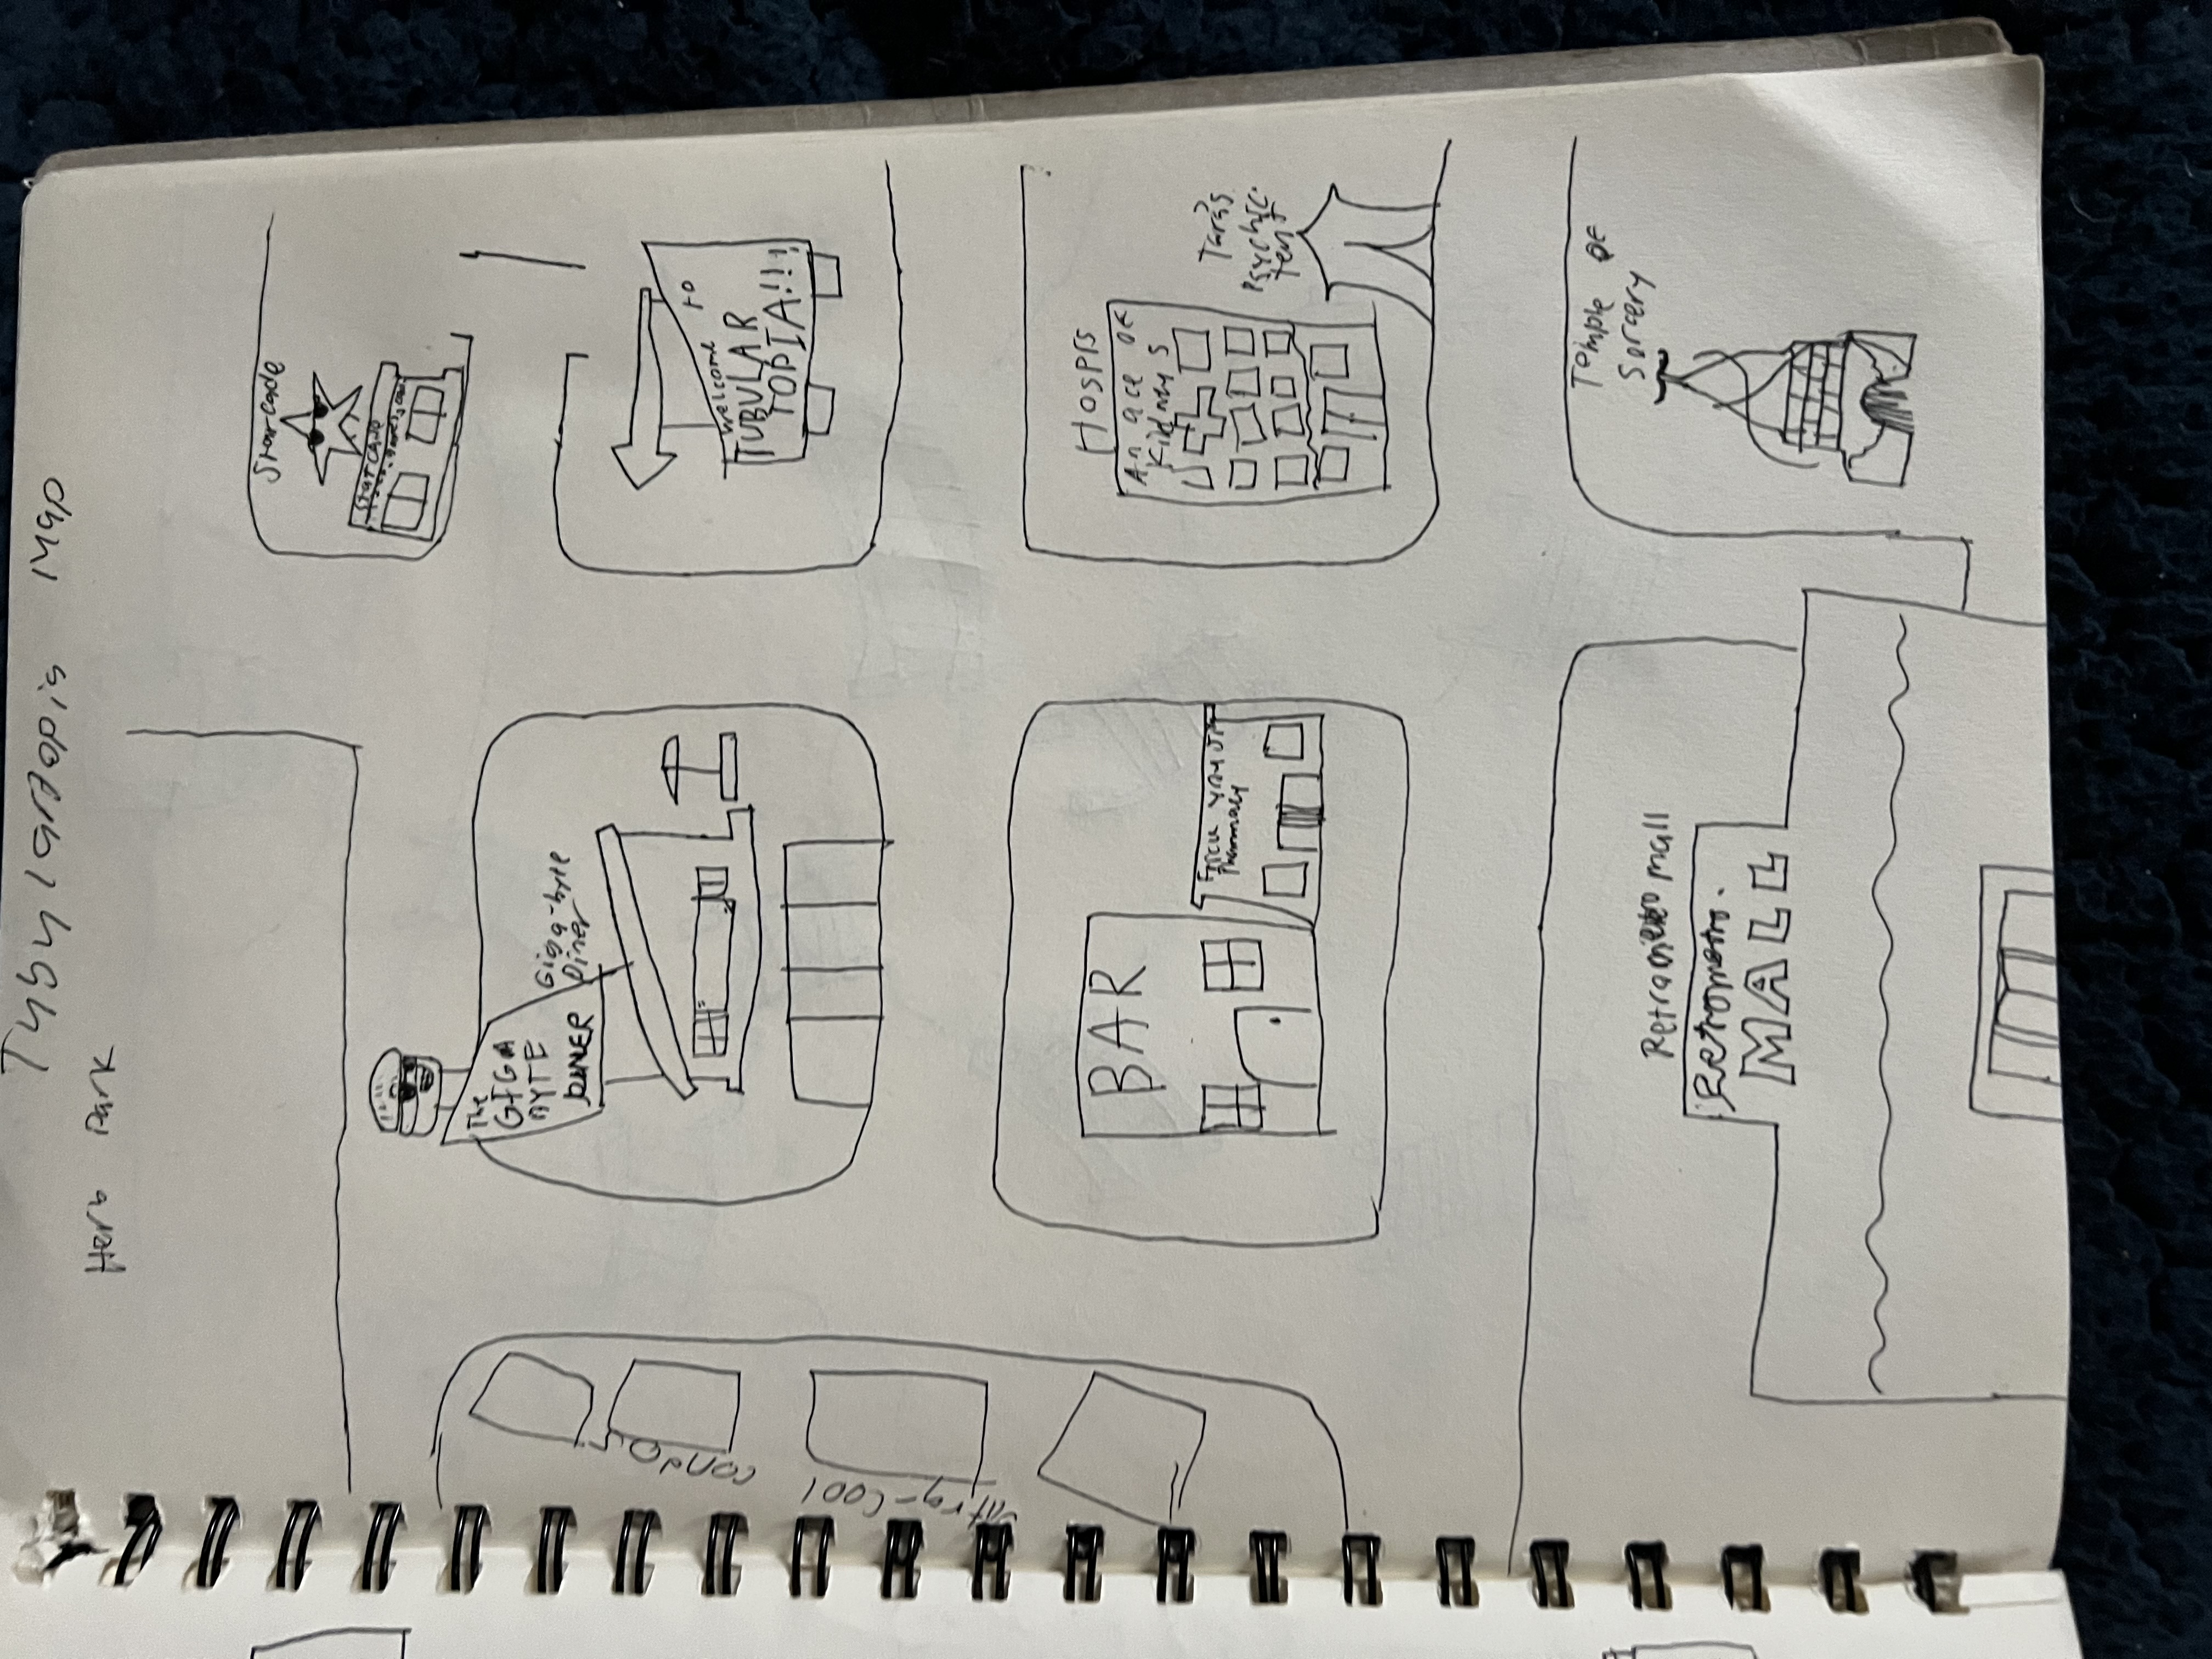 Tubulartopia Map
Herb Park
Starcade
STARCADE
The
GIGA
BYTE
DINER
Giga-byte
Diner
Ultra-Cool
condos
Welcome to
TUBULAR
TOPIA!!!
BAR
Pharmacy
Hospis
An ace of
Kidneys
Tara's
Psychic
tent
Retrometro mall
Retrometro.
MALL
Temple of
Sorcery